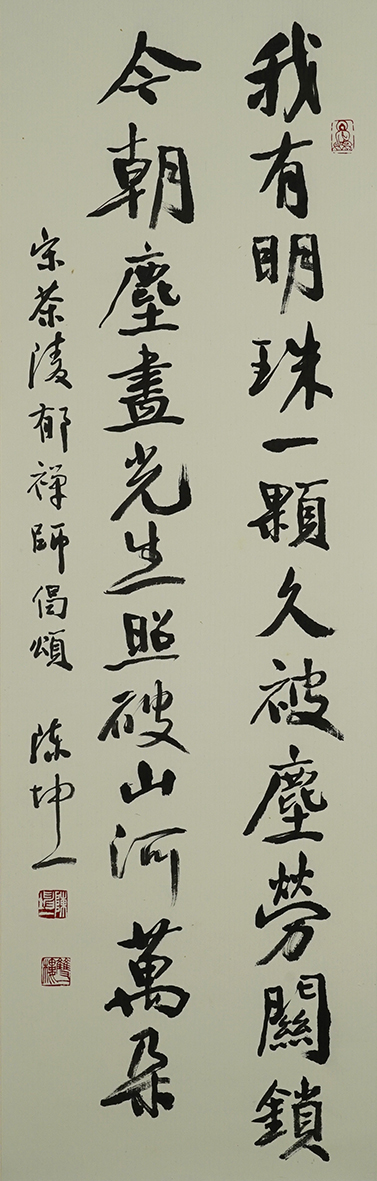 我有明珠一顆久被塵勞關鎖
今朝塵盡光生照破山河萬朵
宋茶陵郁禪師偈頌 陳坤一